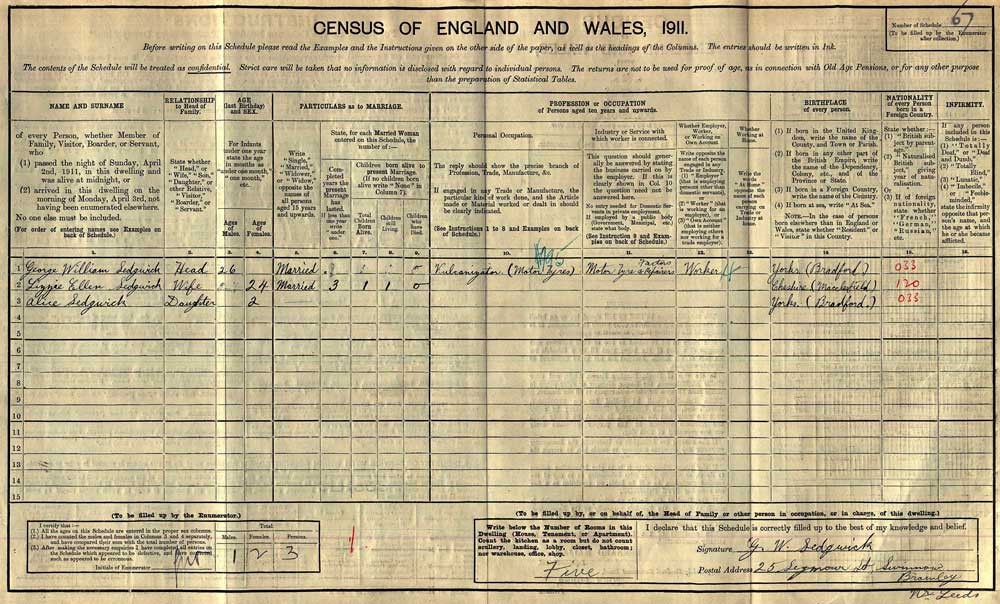 CENSUS OF ENGLAND AND WALES, 1911.
Number of Schedule 67
(To be filled up by the Enumerator
after collection.)
Before writing on this Schedule please read the Examples and the Instructions given on the other side of the paper, as well as the headings of the Columns. The entries should be written in Ink.
The contents of the Schedule will be treated as confidential. Strict care will be taken that no information is disclosed with regard to individual persons. The returns are not to be used for proof of age, as in connection with Old Age Pensions, or for any other purpose
than the preparation of Statistical Tables.
NAME AND SURNAME
of every Person, whether Member of
Family, Visitor, Boarder, or Servant,
who
(1) passed the night of Sunday, April
2nd, 1911, in this dwelling and
was alive at midnight, or
(2) arrived in this dwelling on the
morning of Monday, April 3rd, not
having been enumerated elsewhere.
No one else must be included.
(For order of entering names see Examples on
back of Schedule.)
RELATIONSHIP
to Head of
Family.
State whether
"Head," or
"Wife," "Son,"
"Daughter," or
other Relative,
"Visitor,"
"Boarder," or
"Servant."
AGE
(last Birthday)
and SEX.
For Infants
under one year
state the age
in months as
"under one month,"
"one month,"
etc.
Ages
of
Males.
Ages
of
Females.
PARTICULARS as to MARRIAGE.
Write
"Single,"
"Married,"
"Widower,"
or "Widow,"
opposite the
names of
all persons
aged 15 years
and upwards.
State, for each Married Woman
entered on this Schedule, the
number of:—
Completed
years the
present
Marriage
has
lasted.
If less than
one year
write
"under
one."
Children born alive to
present Marriage.
(If no children born
alive write "None" in
Column 7).
Total
Children
Born
Alive.
Children
still
Living.
Children
who
have
Died.
PROFESSION or OCCUPATION
of Persons aged ten years and upwards.
Personal Occupation.
The reply should show the precise branch of
Profession, Trade, Manufacture, &c.
If engaged in any Trade or Manufacture, the
particular kind of work done, and the Article
made or Material worked or dealt in should
be clearly indicated.
(See Instructions 1 to 8 and Examples on back
of Schedule.)
Industry or Service with
which worker is connected.
This question should generally
be answered by stating
the business carried on by
the employer. If this is
clearly shown in Col. 10
the question need not be
answered here.
No entry needed for Domestic Servants
in private employment.
If employed by a public body
(Government, Municipal, etc.)
state what body.
(See Instruction 9 and Examples
on back of Schedule.)
Whether Employer,
Worker, or
Working on
Own Account.
Write opposite the
name of each person
engaged in any
Trade or Industry,
(1) "Employer"
(that is employing
persons other than
domestic servants),
or
(2) "Worker" (that
is working for an
employer), or
(3) "Own Account"
(that is neither
employing others nor
working for a
trade employer).
Whether
Working at
Home.
Write the
words
"At Home"
opposite the
name of each
person
carrying on
Trade or
Industry at
home.
BIRTHPLACE
of every person.
(1) If born in the United Kingdom,
write the name of the
County, and Town or Parish.
(2) If born in any other part of
the British Empire, write
the name of the Dependency,
Colony, etc., and of the
Province or State.
(3) If born in a Foreign Country,
write the name of the Country.
(4) If born at sea, write "At Sea."
NOTE.—In the case of persons
born elsewhere than in England or
Wales, state whether "Resident" or
"Visitor" in this Country.
NATIONALITY
of every Person
born in a
Foreign Country.
State whether:—
(1) "British subject
by parentage,"
(2) "Naturalised
British subject,"
giving year of
naturalisation.
Or
(3) If of foreign
nationality,
state whether
"French,"
"German,"
"Russian,"
etc.
INFIRMITY.
If any person
included in this
Schedule is:—
(1) "Totally
Deaf," or "Deaf
and Dumb,"
(2) "Totally
Blind,"
(3) "Lunatic,"
(4) "Imbecile,"
or "Feeble-minded,"
state the infirmity
opposite that person's
name, and
the age at which
he or she became
afflicted.
1. 2. 3. 4. 5. 6. 7. 8. 9. 10. 11. 12. 13. 14. 15. 16.
1 George William Sedgwick Head 26 Married Vulcanizator (Motor Tyres) Motor Tyre Factors & Repairers Worker Yorks (Bradford) 033
2 Lizzie Ellen Sedgwick Wife 24 Married 3 1 1 0 Cheshire (Macclesfield) 120
3 Alice Sedgwick Daughter 2 Yorks. (Bradford.) 033
4
5
6
7
8
9
10
11
12
13
14
15
(To be filled up by the Enumerator.)
I certify that:—
(1.) All the ages on this Schedule are entered in the proper sex columns.
(2.) I have counted the males and females in Columns 3 and 4 separately,
and have compared their sum with the total number of persons.
(3.) After making the necessary enquiries I have completed all entries on
the Schedule which appeared to be defective, and have corrected
such as appeared to be erroneous.
Initials of Enumerator
Total.
Males. Females. Persons.
1 2 3
(To be filled up by, or on behalf of, the Head of Family or other person in occupation, or in charge, of this dwelling.)
Write below the Number of Rooms in this
Dwelling (House, Tenement, or Apartment).
Count the kitchen as a room but do not count
scullery, landing, lobby, closet, bathroom;
nor warehouse, office, shop.
Five
I declare that this Schedule is correctly filled up to the best of my knowledge and belief.
Signature G. W. Sedgwick
Postal Address 25 Seymour St, Swinnow
Bramley
Nr. Leeds